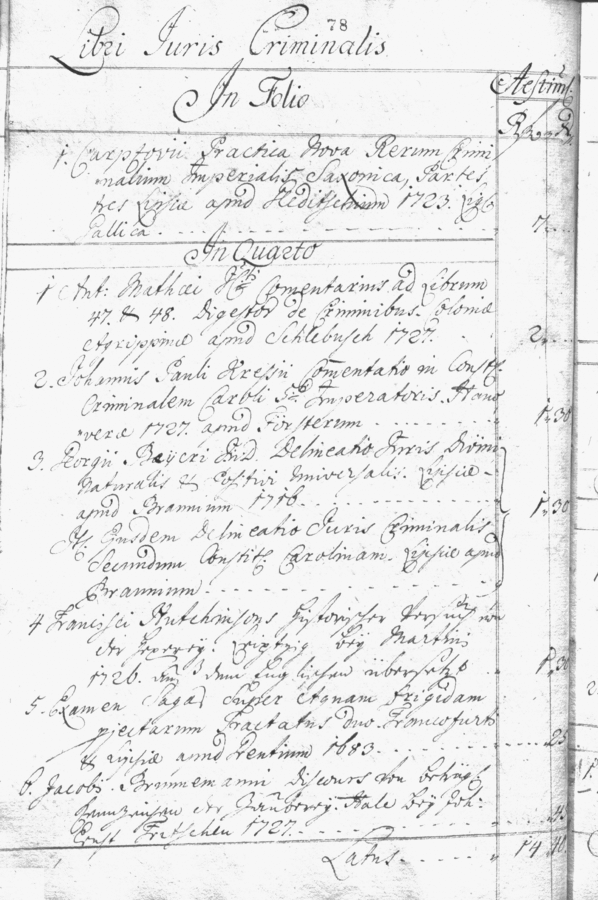 78
Libri Juris Criminalis
In Folio
Aestim:
R
1. Carpzovii Practica Nova Rerum Crimi
nalium Imperialis Saxonica, Partes
tres Lipsiae apud Heditschium 1723. Liga
Gallica
7
In Quarto
1 Ant: Mathaei Commentarius ad Librum
47. & 48. Digestor de Criminibus. Coloniae
Agrippinae apud Schlebusch 1727.
2
2. Johannis Pauli Kressii Commentatio in Const:
Criminalem Caroli 5ti Imperatoris. Hano
verae 1727. apud Försterum
1 30
3. Georgii Beyeri Delineatio Juris Divini
Naturalis & Positivi Universalis. Lipsiae
apud Braunium 1716.
1 30
It: Eiusdem Delineatio Juris Criminalis
Secundum Constit: Carolinam. Lipsiae apud
Braunium
4 Francisci Hutchinsons historischer Versuch von
der Hexerey. Leipzig bey Martini
1726. aus dem Englischen übersetzt
1 30
5. Examen Sagar Super Aquam frigidam
projectarum Tractatus duo. Francofurti
& Lipsiae apud Prentium 1683.
25
6. Jacobi Brunnemanni Discours von betrügl:
Kennzeichen der Zauberey. Hale bey Joh:
Ernst Fritschen 1727.
45
Latus
14 40